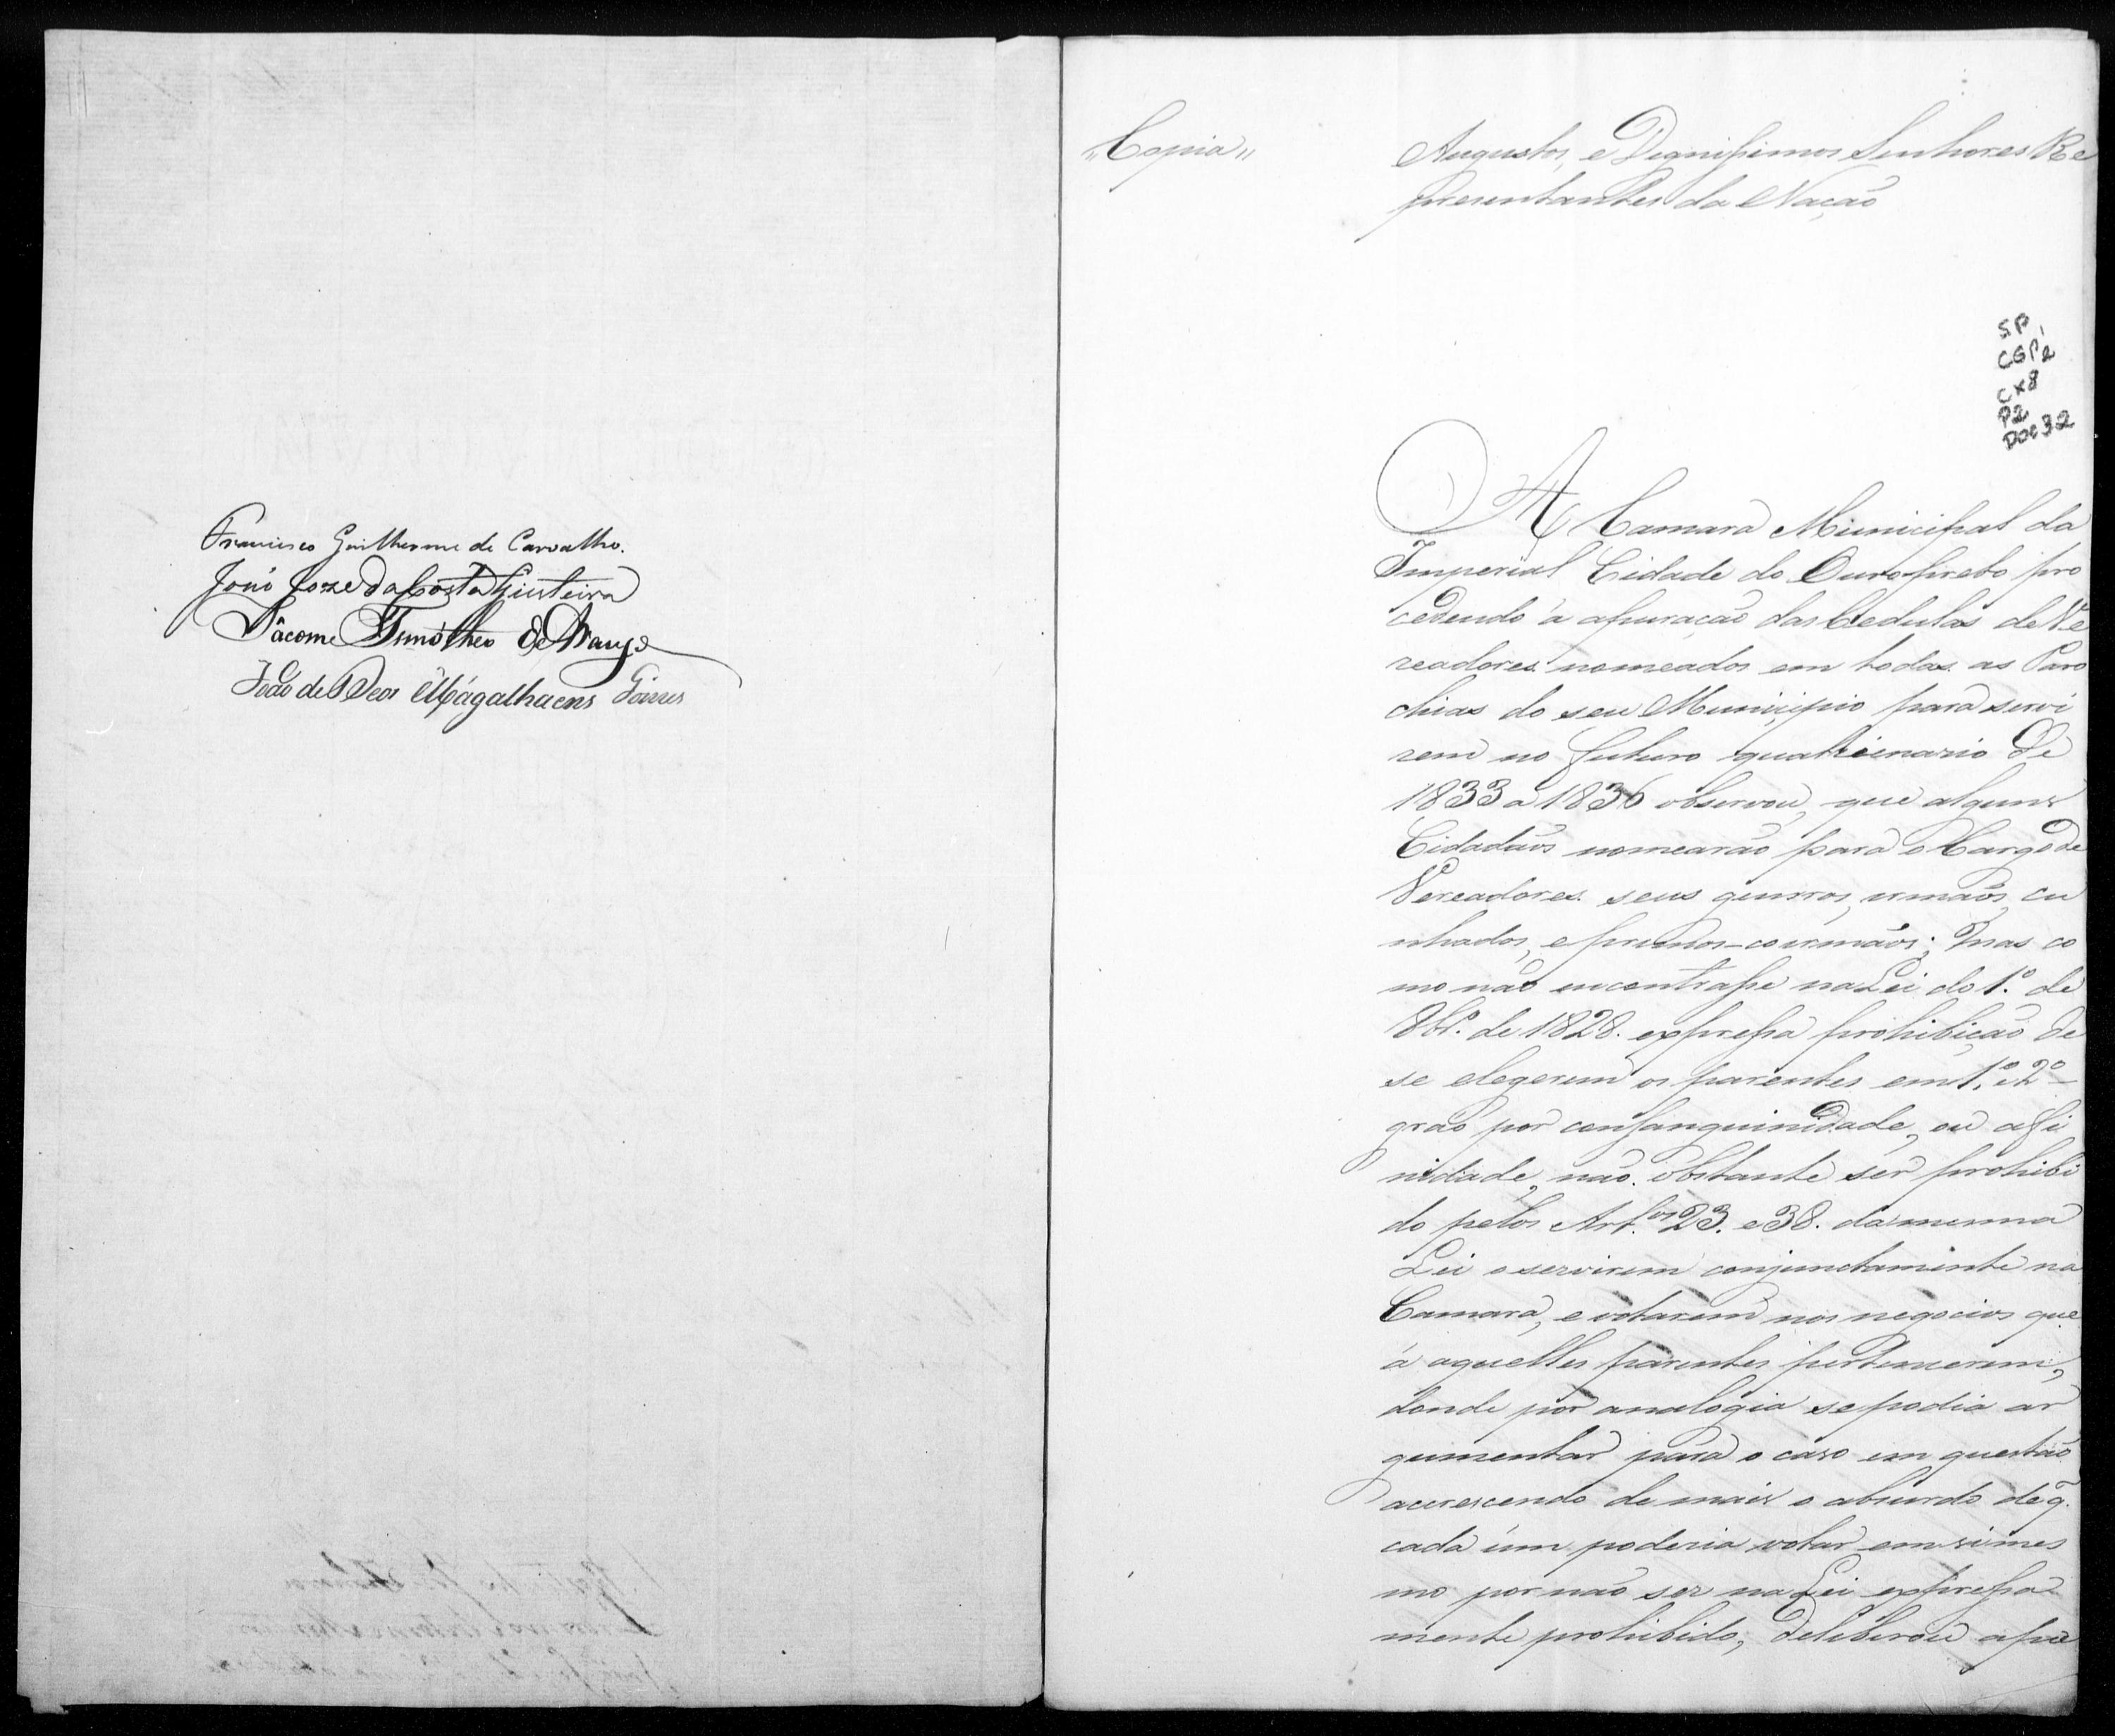 Francisco Guilherme de Carvalho.
João Joze da Costa
Jácome Timótheo de Araujo
João de Deos Magalhaens Gomes
"Copia"
Augustos, e Dignissimos Senhores Re
presentantes da Nação
SP
CGP 2
CX8
P2
DOC 32
A Camara Municipal da
Imperial Cidade do Ouro preto pro
cedendo á apuração das Cedulas de Ve
readores nomeados em todas as Paro
chias do seu Municipio para servi
rem no futuro quatrienario de
1833 a 1836 observou, que alguns
Cidadãos nomearão para o Cargo de
Vereadores seus genrros, irmãos, cu
nhados, e primos-coirmãos; mas co
mo não encontrasse na Lei do 1.º de
8br.º de 1828. expressa prohibição de
se elegerem os parentes em 1.º e 2º
gráo por consanguinidade, ou afi
nidade, não obstante ser prohibi
do pelos Art.os 23. e 38. da mesma
Lei o servirem conjunctamente na
Camara, e votarem nos negocios que
á aquelles parentes pertencerem,
donde por analogia se podia ar
gumentar para o caso em questão
acrescendo de mais o absurdo de q̃.
cada úm poderia votar em si mes
mo por não ser na Lei expressa
mente prohibido, deliberou apu